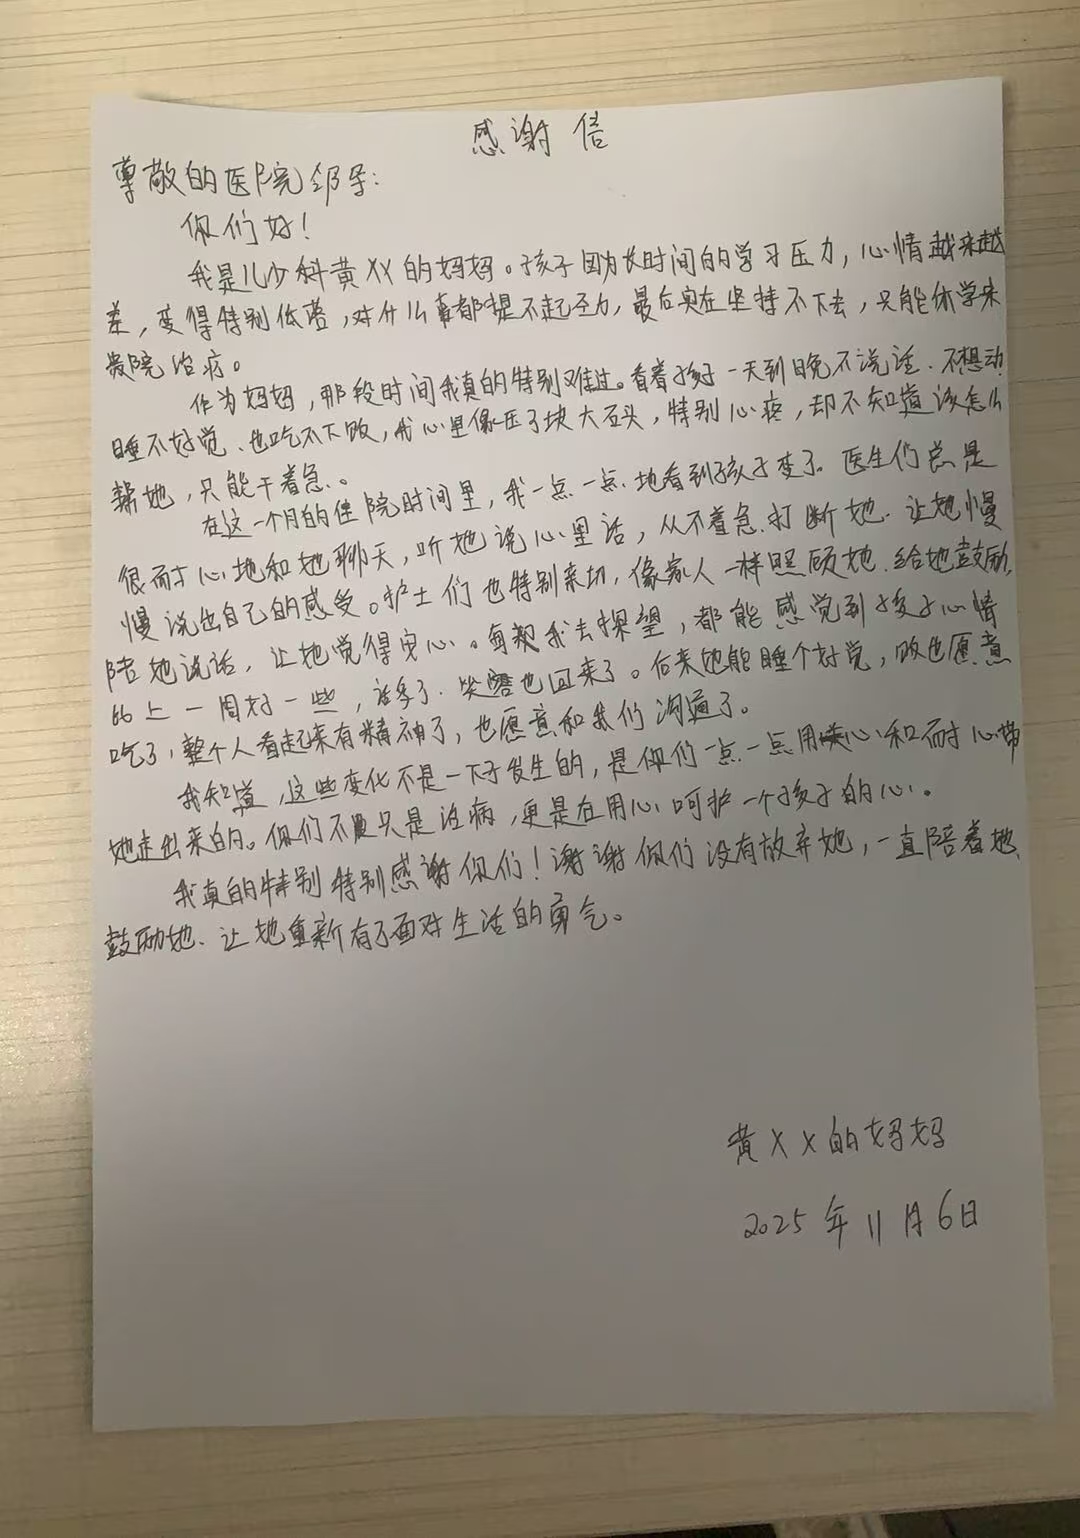 感谢信
尊敬的医院领导：
你们好！
我是儿少科黄XX的妈妈。孩子因为长时间的学习压力，心情越来越
差，变得特别低落，对什么事都提不起劲，最后实在坚持不下去，只能休学来
贵院治疗。
作为妈妈，那段时间我真的特别难过。看着孩子一天到晚不说话、不想动、
睡不好觉、也吃不下饭，我心里像压了块大石头，特别心疼，却不知道该怎么
帮她，只能干着急。
在这一个月的住院时间里，我一点一点地看到孩子变了。医生们总是
很耐心地和她聊天，听她说心里话，从不着急打断她、让她慢
慢说出自己的感受。护士们也特别亲切，像家人一样照顾她、给她鼓励、
陪她说话，让她觉得安心。每期我去探望，都能感觉到孩子心情
比上一周好一些，话多了、笑容也回来了。后来她能睡个好觉，饭也愿意
吃了，整个人看起来有精神了，也愿意和我们沟通了。
我知道，这些变化不是一下子发生的，是你们一点一点用心和耐心带
她走出来的。你们不只是治病，更是在用心呵护一个孩子的心。
我真的特别特别感谢你们！谢谢你们没有放弃她，一直陪着她、
鼓励她、让她重新有了面对生活的勇气。
黄XX的妈妈
2025年11月6日